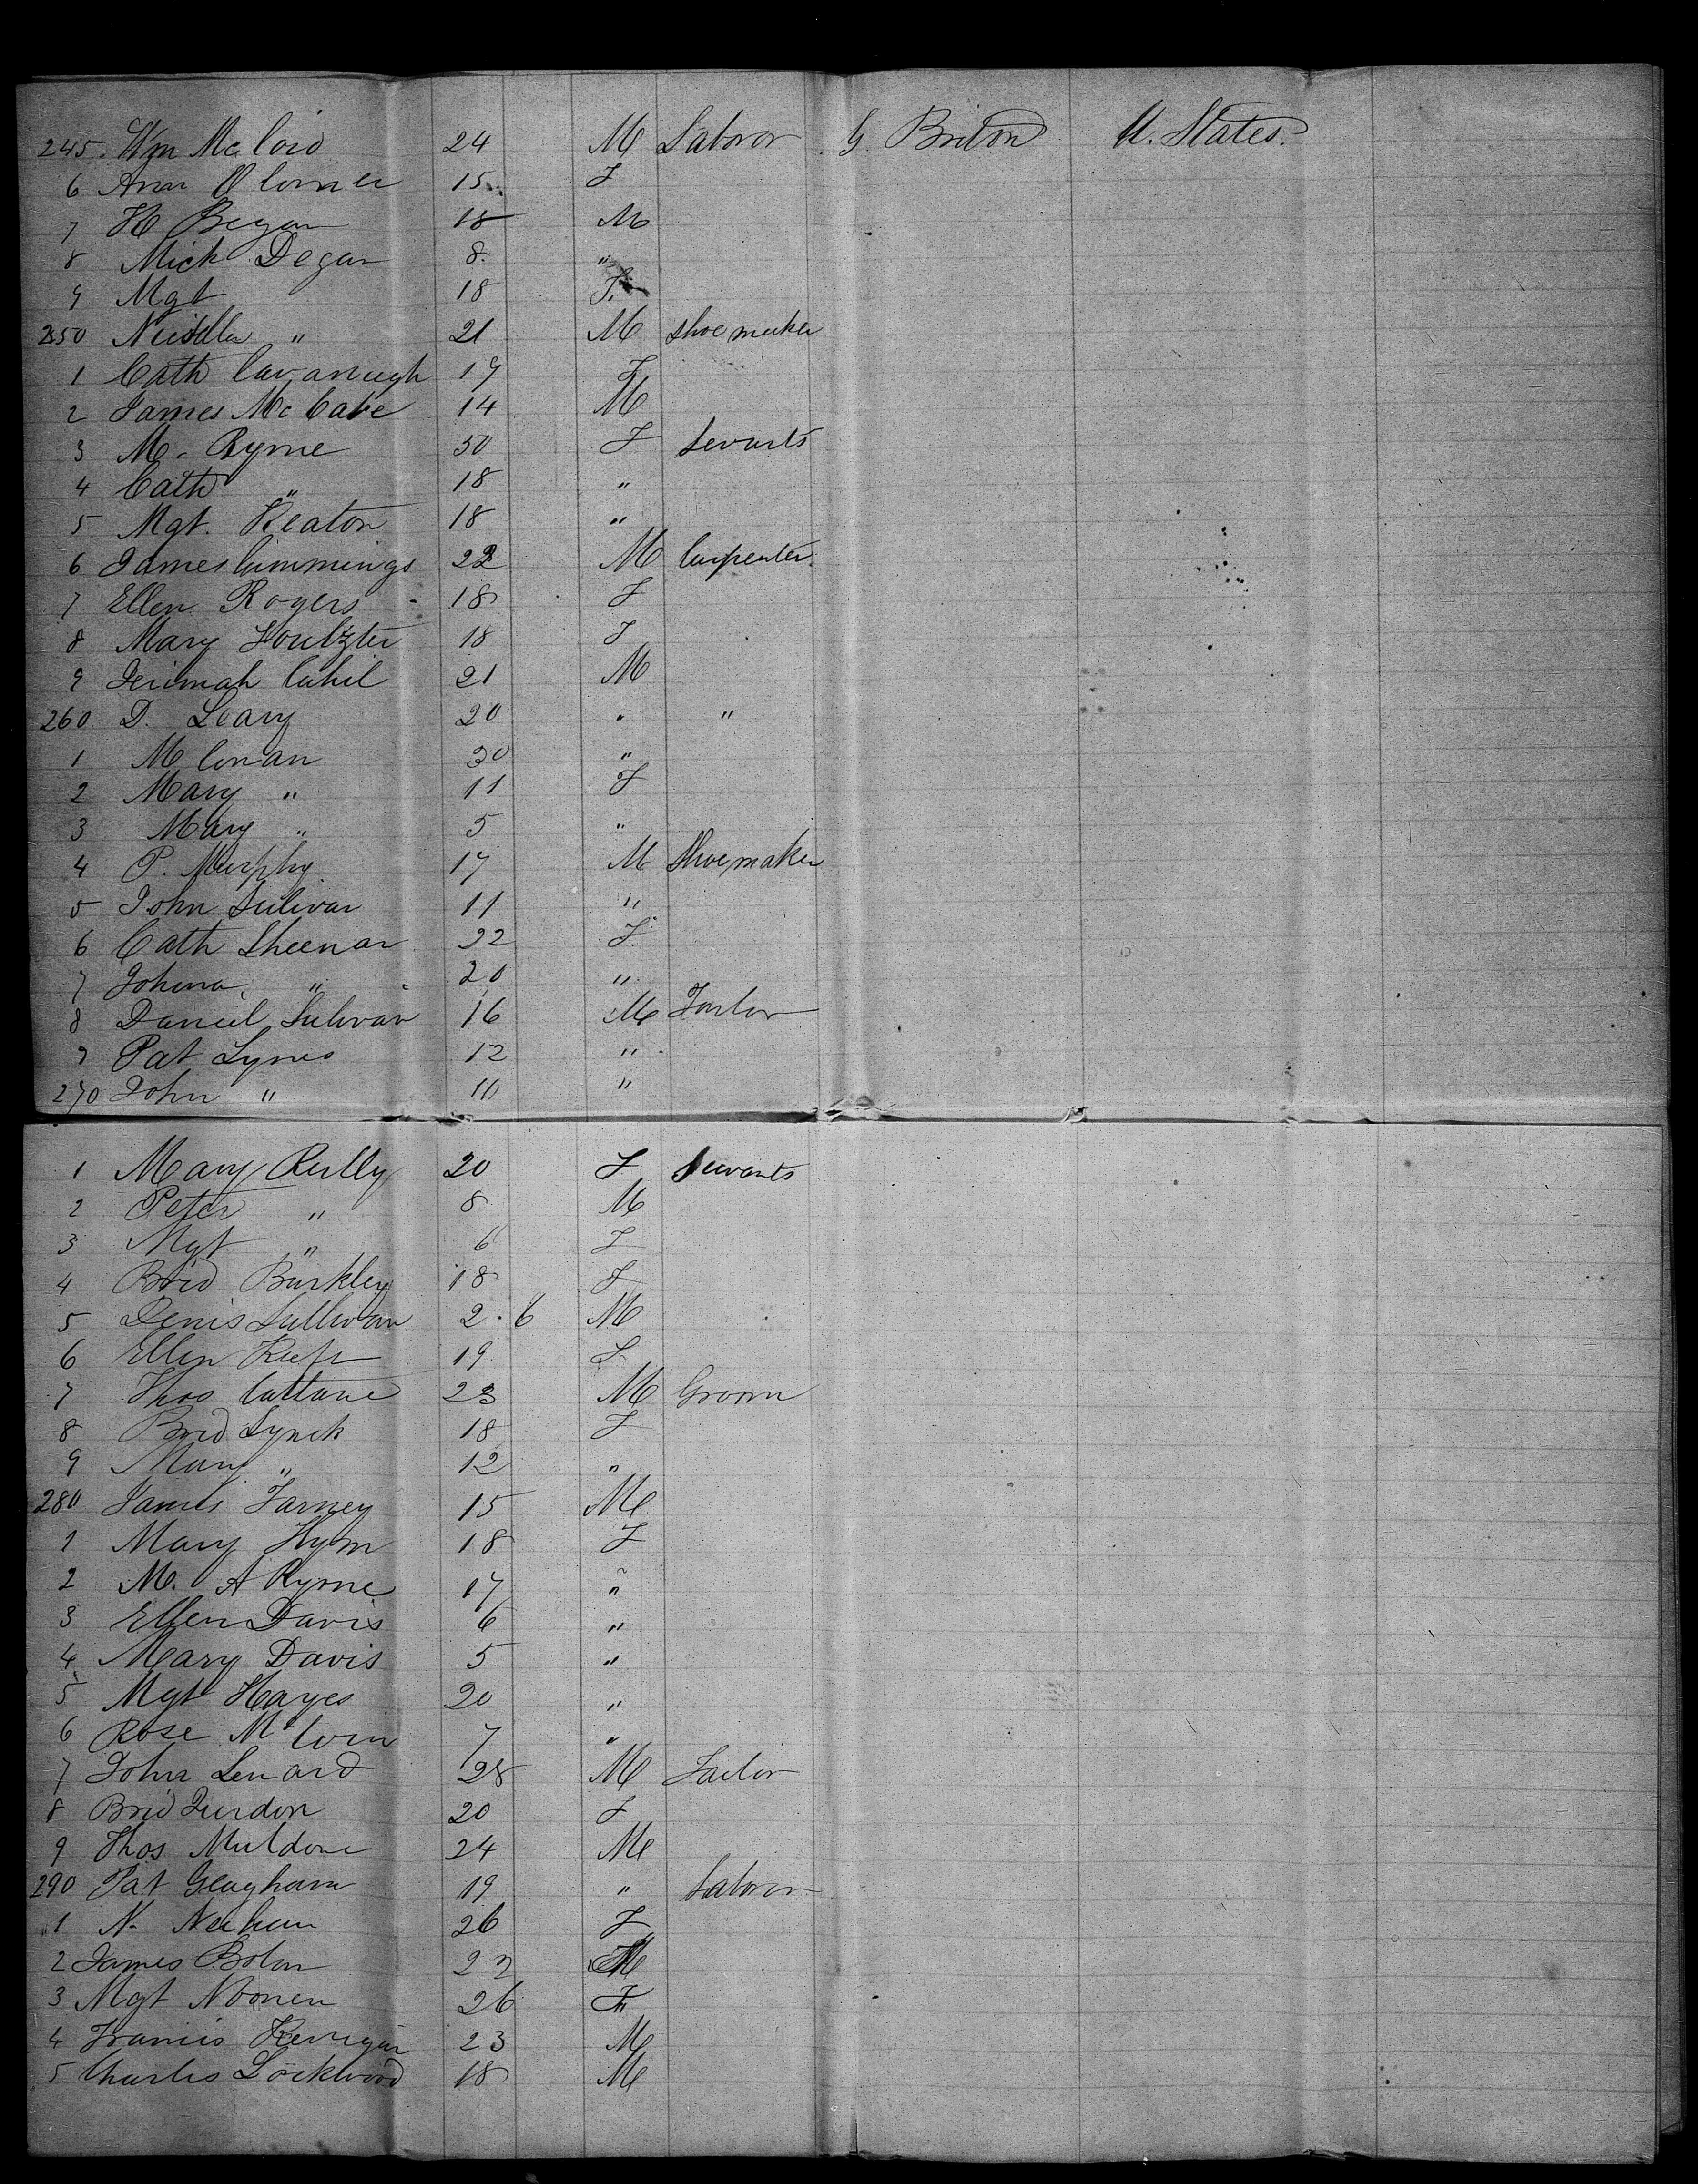 245. Wm Mc Coid 24 M Labror G. Briton U. States.
6 Ann O Conner 15 F
7 H Began 18 M
8 Mick Degan 8. "
9 Mgt 18 F.
250 " 21 M shoe meeker
1 Cath Cavanaugh 19 F
2 James Mc Cabe 14 M
3 M. Ryrne F Sevants
4 Cath " 18 "
5 Mgt. Keaton 18 "
6 James Cummings 22 M Carpenter.
7 Ellen Rogers 18 F
8 Mary 18 F
9 Jerimah Cahil 21 M
260 D. Leary 20 " "
1 M Conan 30 "
2 Mary " 11 F
3 Mary " 5 "
4 P. Murphy 17 M Shoemaker
5 John Sulivan 11 "
6 Cath Sheenan 22 F
7 Johna " 20 "
8 Daniel Sulivan 16 M
9 Pat Lynes 12 "
270 John " 10 "
1 Mary Reilly 20 F Servants
2 Peter " 8 M
3 Mgt " 6 F
4 Brid Burkley 18 F
5 Denis Sullivan 2. 6 M
6 Ellen Keefe 19 F
7 Thos Cultane 23 M Groom
8 Brid Lynch 18 F
9 Mary " 12 "
280 James Farney 15 M
1 Mary Hym 18 F
2 M. A Ryrne 17 "
3 Ellen Davis 6 "
4 Mary Davis 5 "
5 Mgt Hayes 20 "
6 Rose 7 "
7 John Lenard 28 M Tailor
8 Brid 20 F
9 Thos Muldone 24 M
290 Pat Geaghann 19 " Labror
1 N. 26 F
2 James Bolan 22 M
3 Mgt Noonen 26 F
4 Francis Kerrigan 23 M
5 Charles Lockwood 18 M